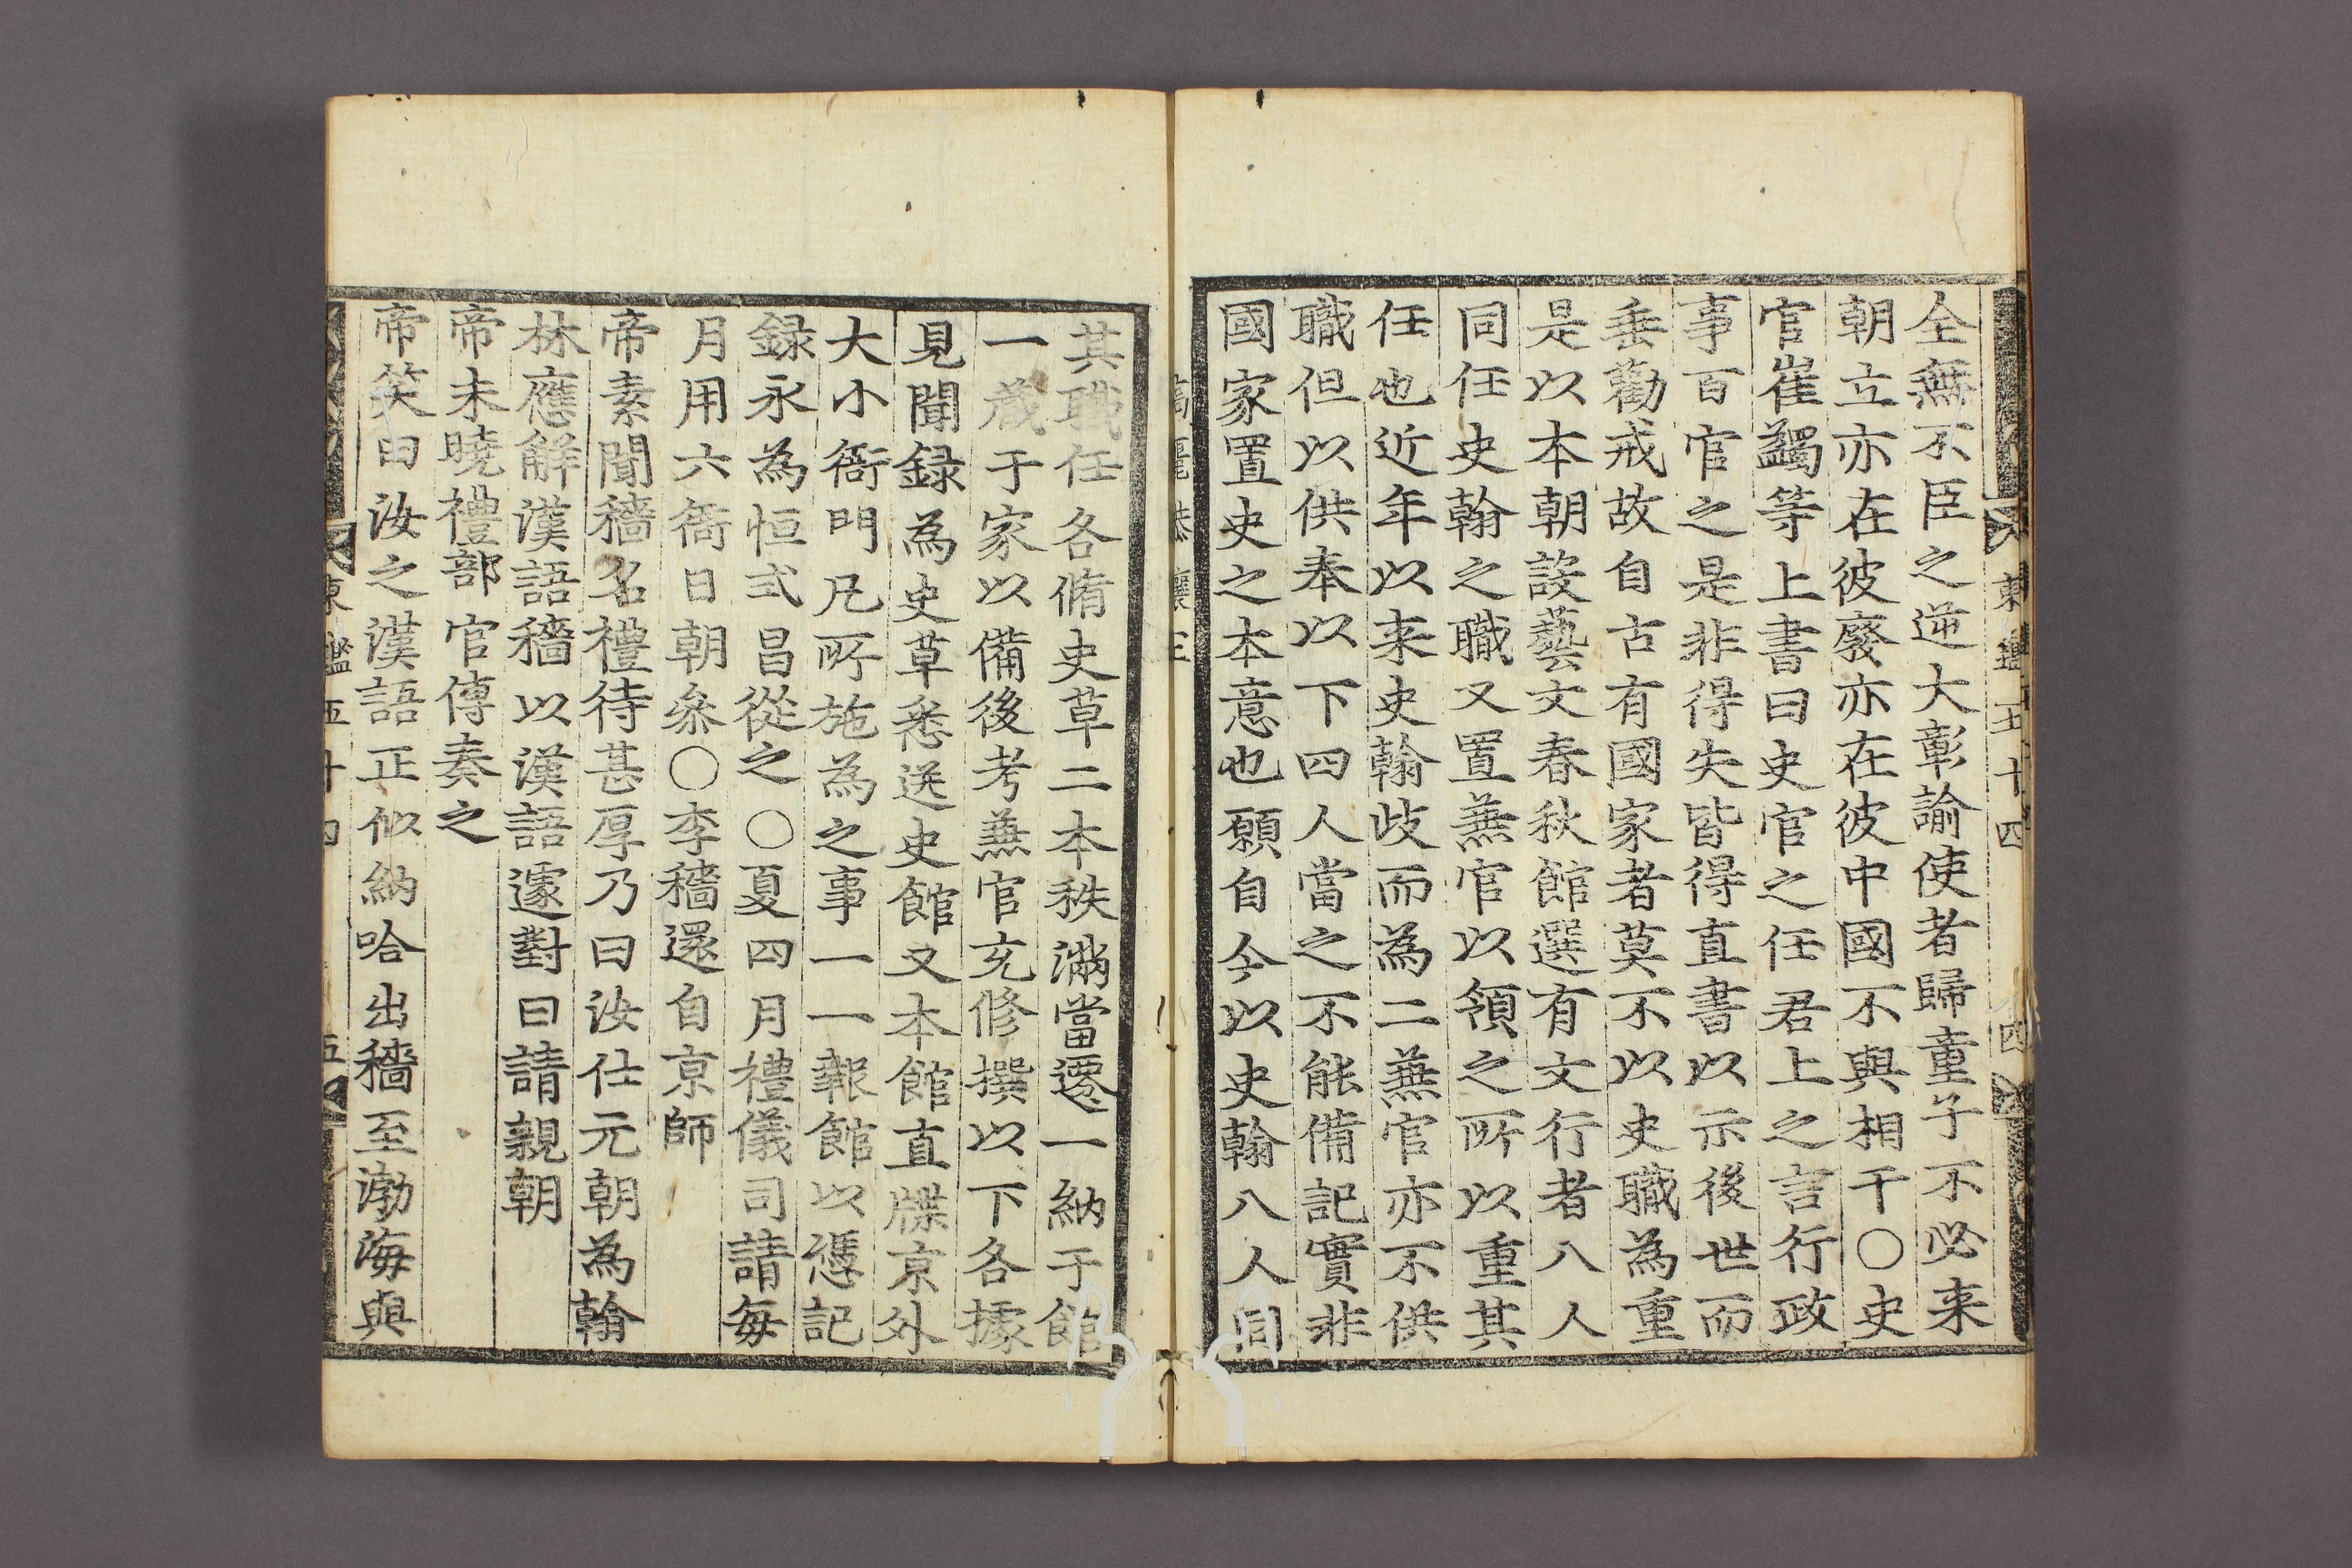 東鑑五十四
四
全無不臣之逆大彰諭使者歸童子不必来
朝立亦在彼廢亦在彼中國不與相干○史
官崔蠲等上書曰史官之任君上之言行政
事百官之是非得失皆得直書以示後世而
垂勸戒故自古有國家者莫不以史職為重
是以本朝設藝文春秋館選有文行者八人
同任史翰之職又置兼官以領之所以重其
任也近年以来史翰歧而為二兼官亦不供
職但以供奉以下四人當之不能備記實非
國家置史之本意也願自今以史翰八人同
高麗恭讓王
其職任各脩史草二本秩滿當遷一納于館
一蔵于家以備後考兼官充修撰以下各據
見聞録為史草悉送史館又本館直牒京外
大小衙門凡所施為之事一一報館以憑記
録永為恒式昌從之○夏四月禮儀司請每
月用六衙日朝叅○李穡還自京師
帝素聞穡名禮待甚厚乃曰汝仕元朝為翰
林應解漢語穡以漢語遽對曰請親朝
帝未曉禮部官傳奏之
帝笑曰汝之漢語正似納哈出穡至渤海與
東鑑五十四
五